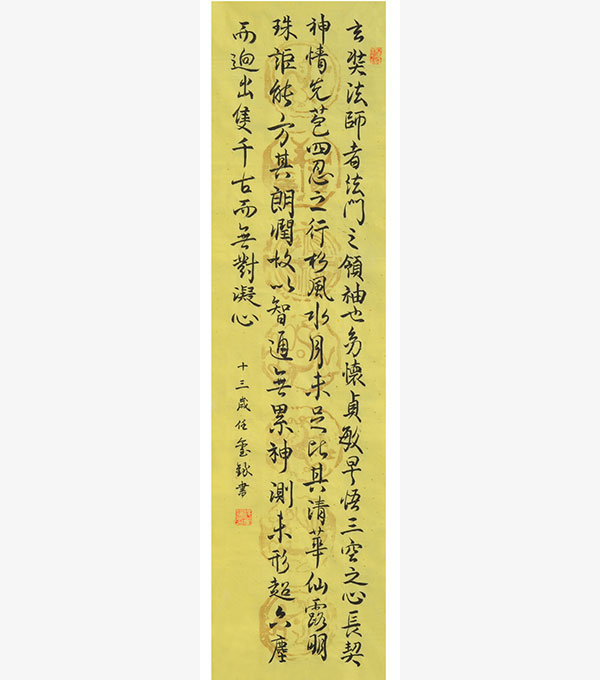 玄奘法師者法門之領袖也幼懷貞敏早悟三空之心長契
神情先苞四忍之行松風水月未足比其清華仙露明
珠詎能方其朗潤故以智通無累神測未形超六塵
而迥出隻千古而無對凝心
十三歲任書